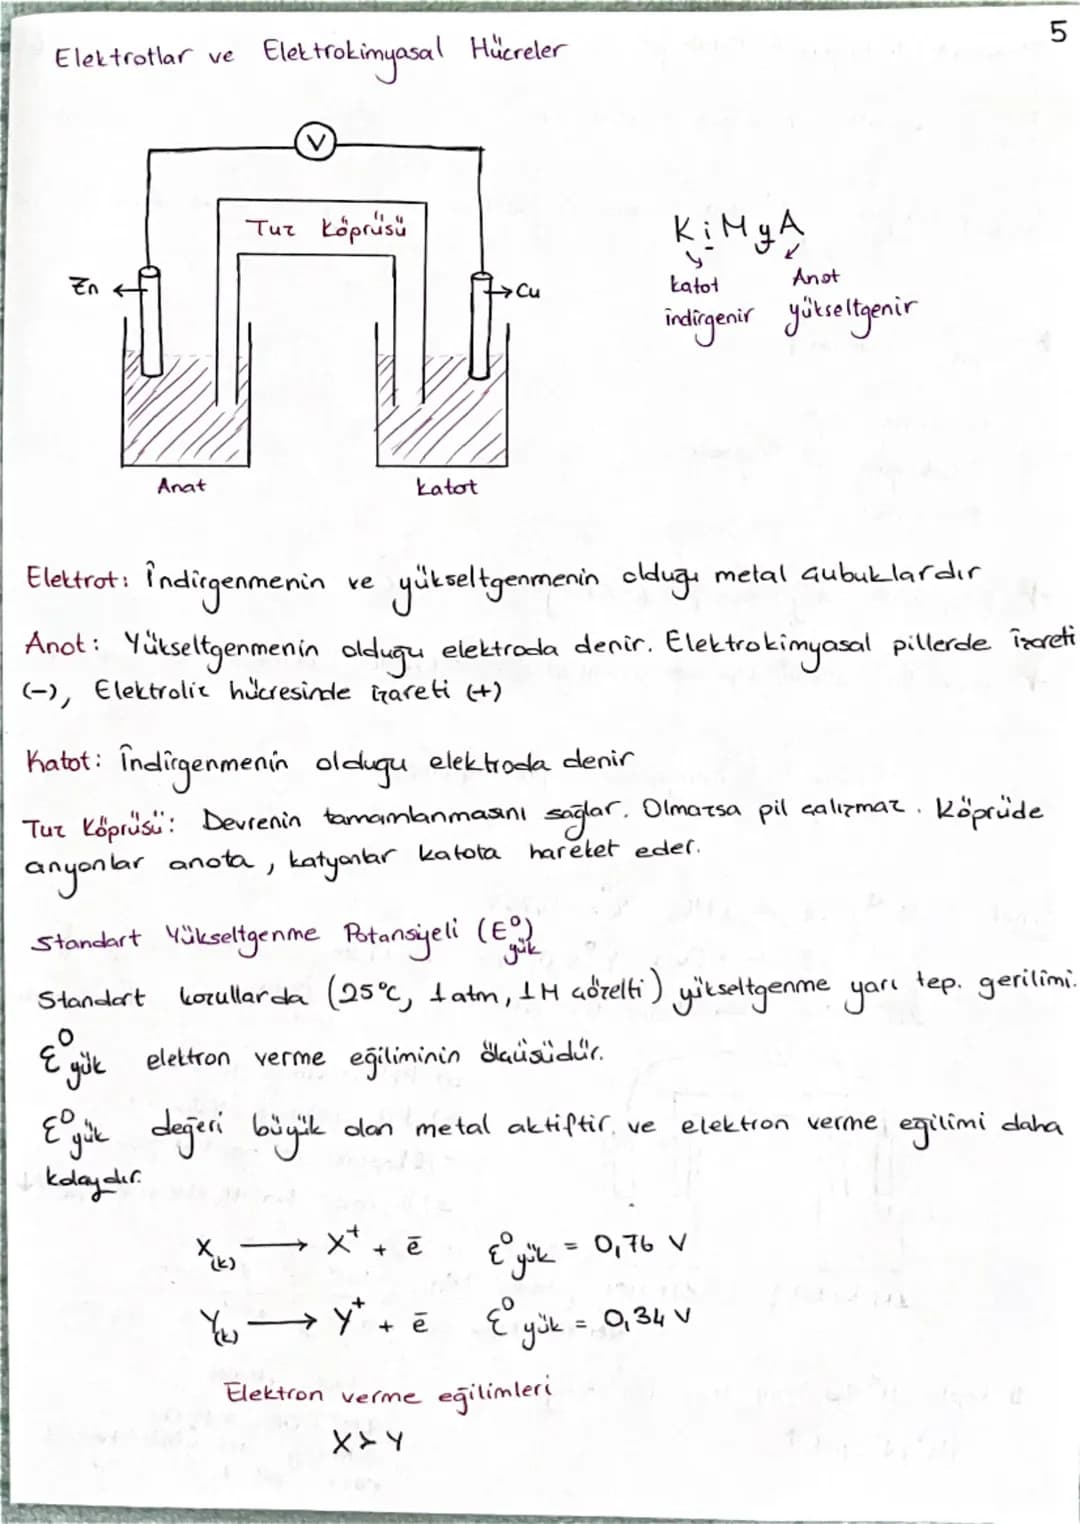 5
Elektrotlar ve Elektrokimyasal Hücreler
V
Tuz Köprüsü
Zn
Cu
Anat
Katot
KiMyA
katot Anot
indirgenir yükseltgenir
Elektrot: İndirgenmenin ve yükseltgenmenin olduğu metal çubuklardır
Anot: Yükseltgenmenin olduğu elektroda denir. Elektrokimyasal pillerde işareti
(-), Elektroliz hücresinde işareti (+)
Katot: İndirgenmenin olduğu elektroda denir
Tuz Köprüsü: Devrenin tamamlanmasını sağlar. Olmazsa pil çalışmaz. Köprüde
anyonlar anota, katyonlar katota hareket eder.
Standart Yükseltgenme Potansiyeli (E⁰yük)
Standart koşullarda (25°C, 1 atm, 1M çözelti) yükseltgenme yarı tep. gerilimi.
E⁰yük elektron verme eğiliminin ölçüsüdür.
E⁰yük değeri büyük olan metal aktiftir. ve elektron verme eğilimi daha
kolaydır.
X(k) → X⁺ + ē E⁰yük = 0,76 V
Y(k) → Y⁺ + ē E⁰yük = 0,34 V
Elektron verme eğilimleri
X > Y